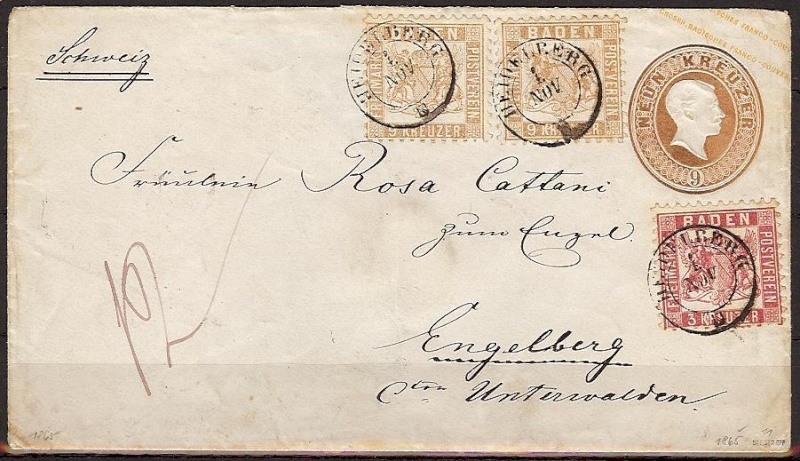 GROSSH. BAD. POSTVEREIN
Schweiz
BADEN
POSTVEREIN
9 KREUZER
HEIDELBERG
1
NOV
BADEN
POSTVEREIN
FREIMARKE
9 KREUZER
HEIDELBERG
1
NOV
NEUN KREUZER
9
Fräulein Rosa Cattani
zum Engel
BADEN
POSTVEREIN
FREIMARKE
3 KREUZER
HEIDELBERG
1
NOV
12
Engelberg
Cton Unterwalden
1865
1865